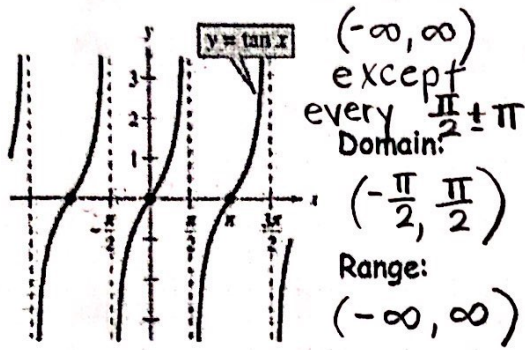 y
y = tan x
3
2
1
-π/2
π/2
π
3π/2
x
(-∞, ∞)
except
every π/2 ± π
Domain:
(-π/2, π/2)
Range:
(-∞, ∞)